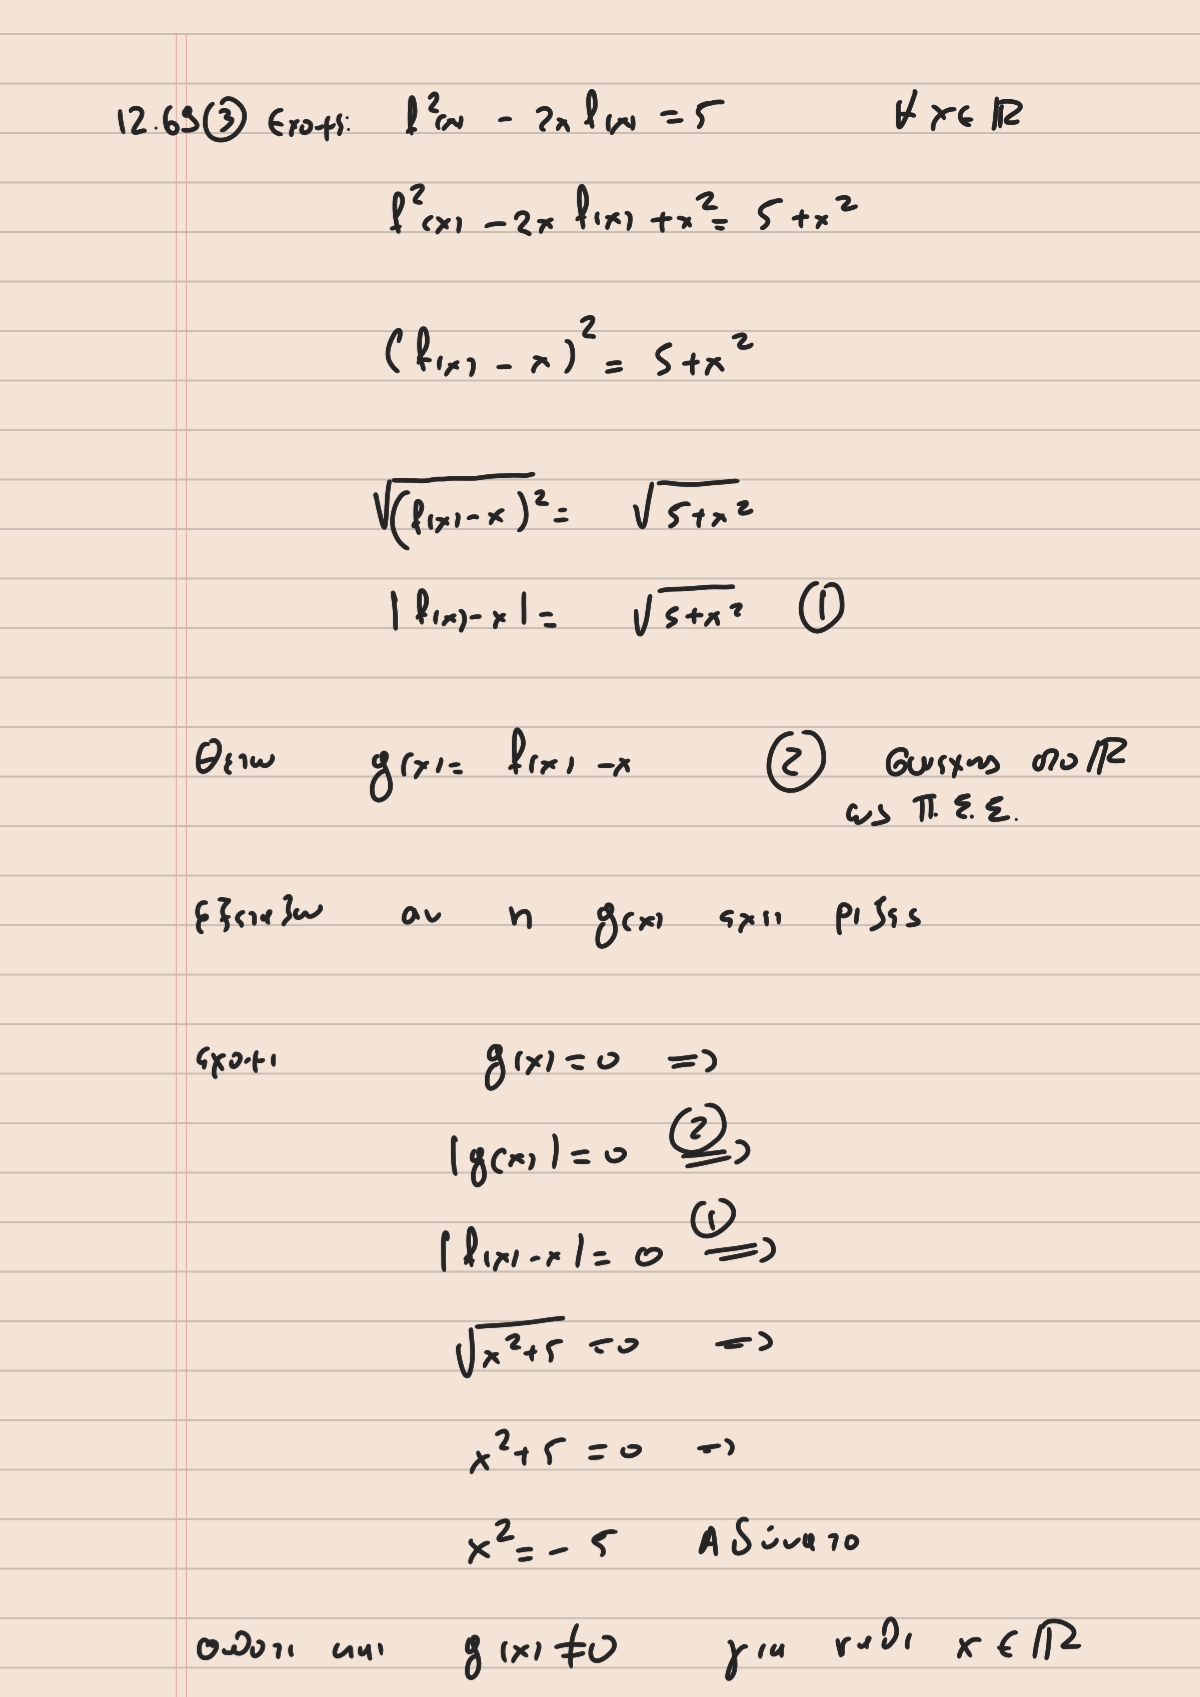 12.69 ③ Εχουμε: f²(x) - 2x f(x) = 5 ∀ x ∈ ℝ
f²(x) - 2x f(x) + x² = 5 + x²
(f(x) - x)² = 5 + x²
√(f(x) - x)² = √5 + x²
|f(x) - x| = √5 + x² ①
Θετω g(x) = f(x) - x ② συνεχης στο ℝ
ως Π.Σ.Σ.
εξεταζω αν η g(x) εχει ριζες
εχουμε g(x) = 0 =>
|g(x)| = 0 ②=>
|f(x) - x| = 0 ①=>
√x² + 5 = 0 =>
x² + 5 = 0 =>
x² = - 5 Αδύνατο
g(x) ≠ 0 για καθε x ∈ ℝ